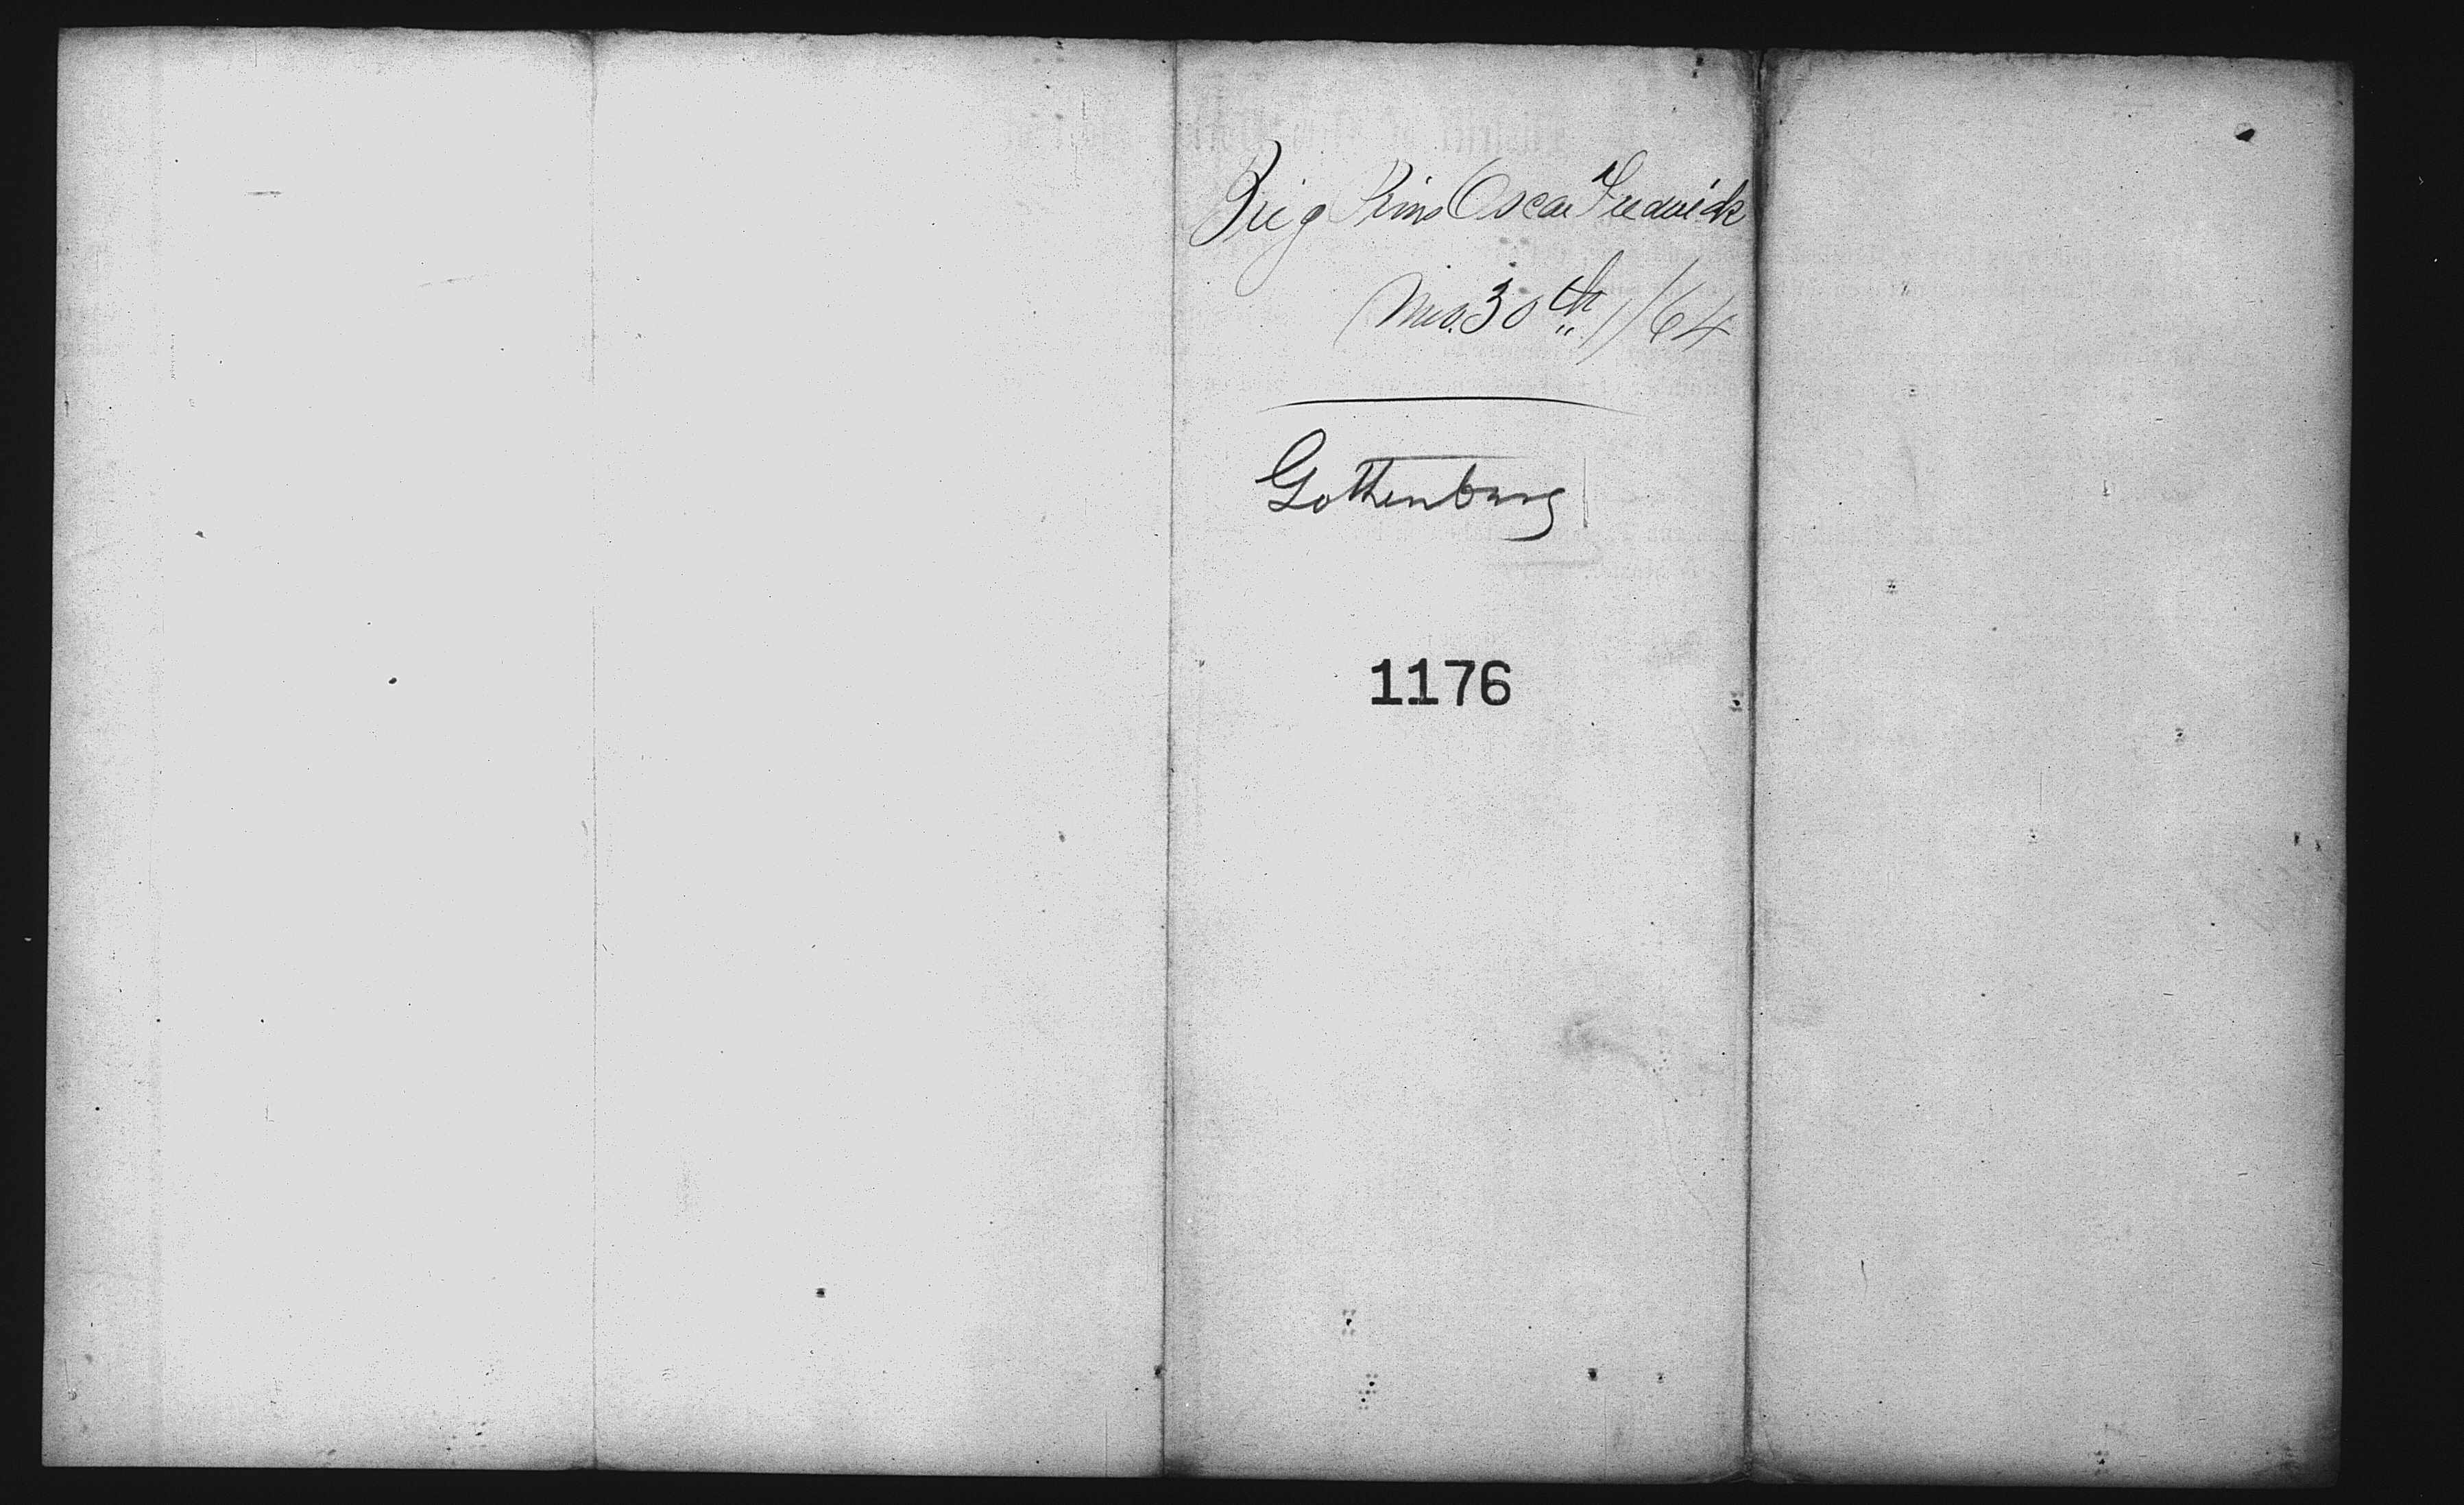 Brig Prins Oscar Fredrick
Nov. 30th / 64
Gothenburg
1176